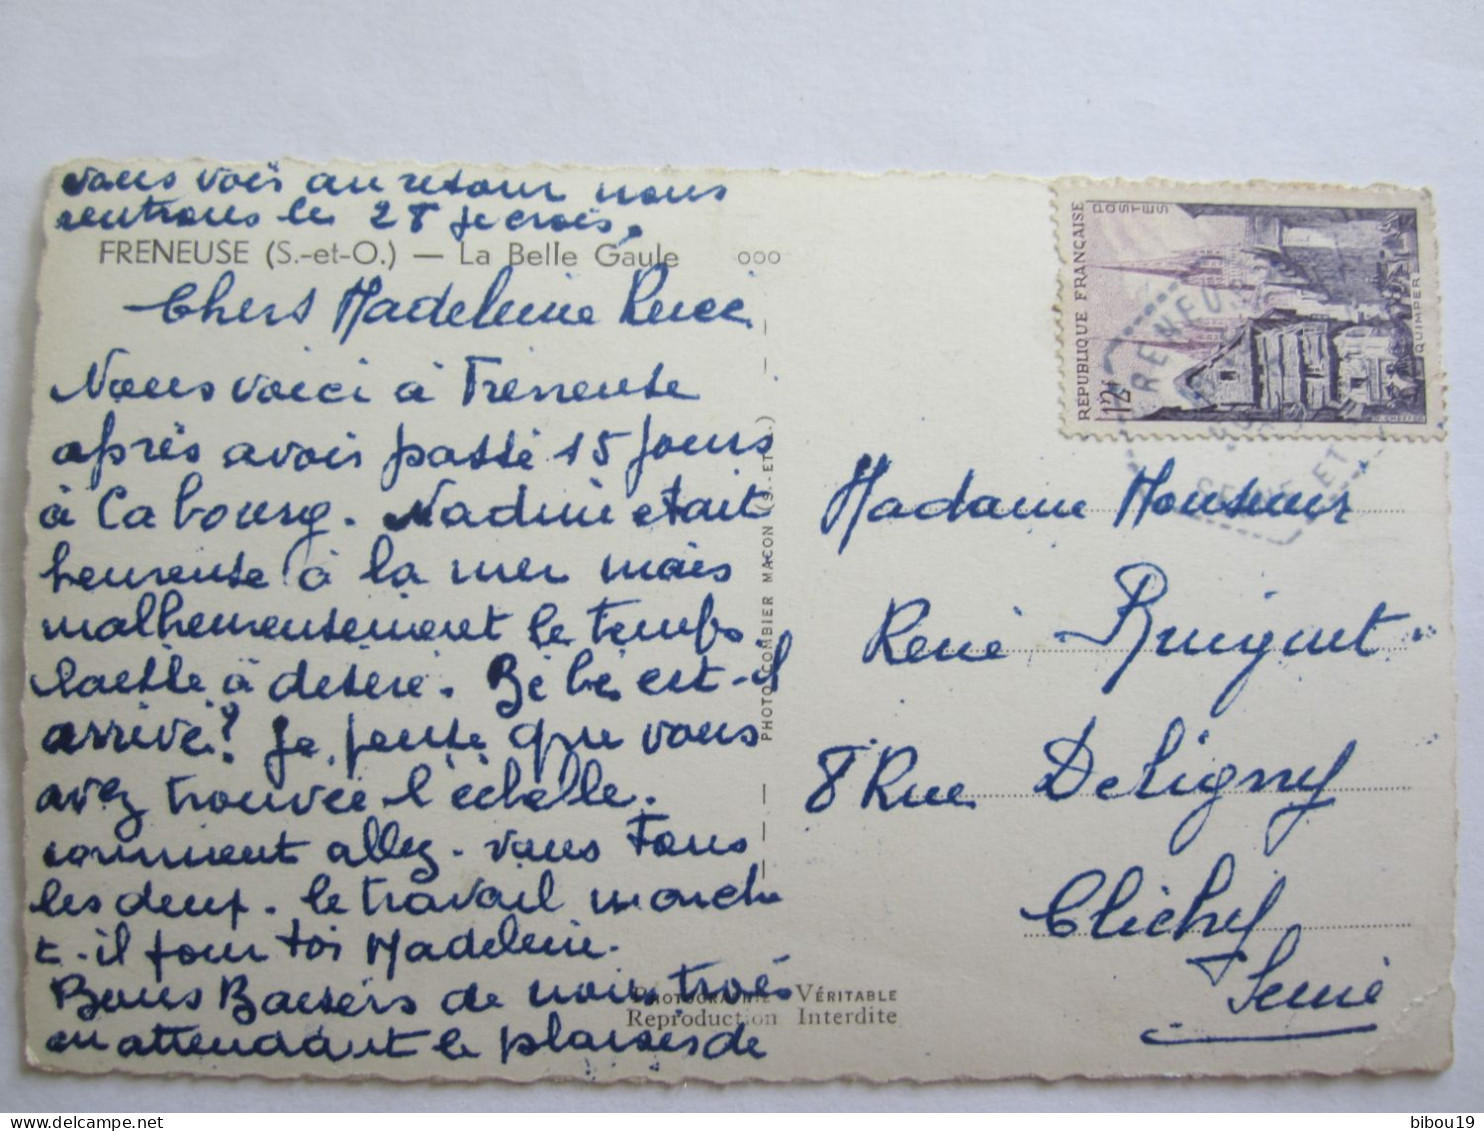 FRENEUSE (S.-et-O.) — La Belle Gaule ooo
Chers Madeleine René
Nous voici à Freneuse
après avoir passé 15 jours
à Cabourg. Nadine etait
heureuse à la mer mais
malheureusement le temps
laisse à désiré. Bébé est-il
arrivé? Je pense que vous
avez trouvée l'échelle.
comment allez-vous tous
les deux. le travail marche
t-il pour toi Madeleine.
Bons Baisers de nous trois
en attendant le plaisir de
vous voir au retour nous
rentrons le 28 je crois.
PHOTO COMBIER MACON (S.-ET-L.)
PHOTOGRAPHIE VÉRITABLE
Reproduction Interdite
RÉPUBLIQUE FRANÇAISE
POSTES
12F
QUIMPER
FRENEUSE
SEINE-ET-
Madame Monsieur
René
8 Rue Deligny
Clichy
Seine
bibou19